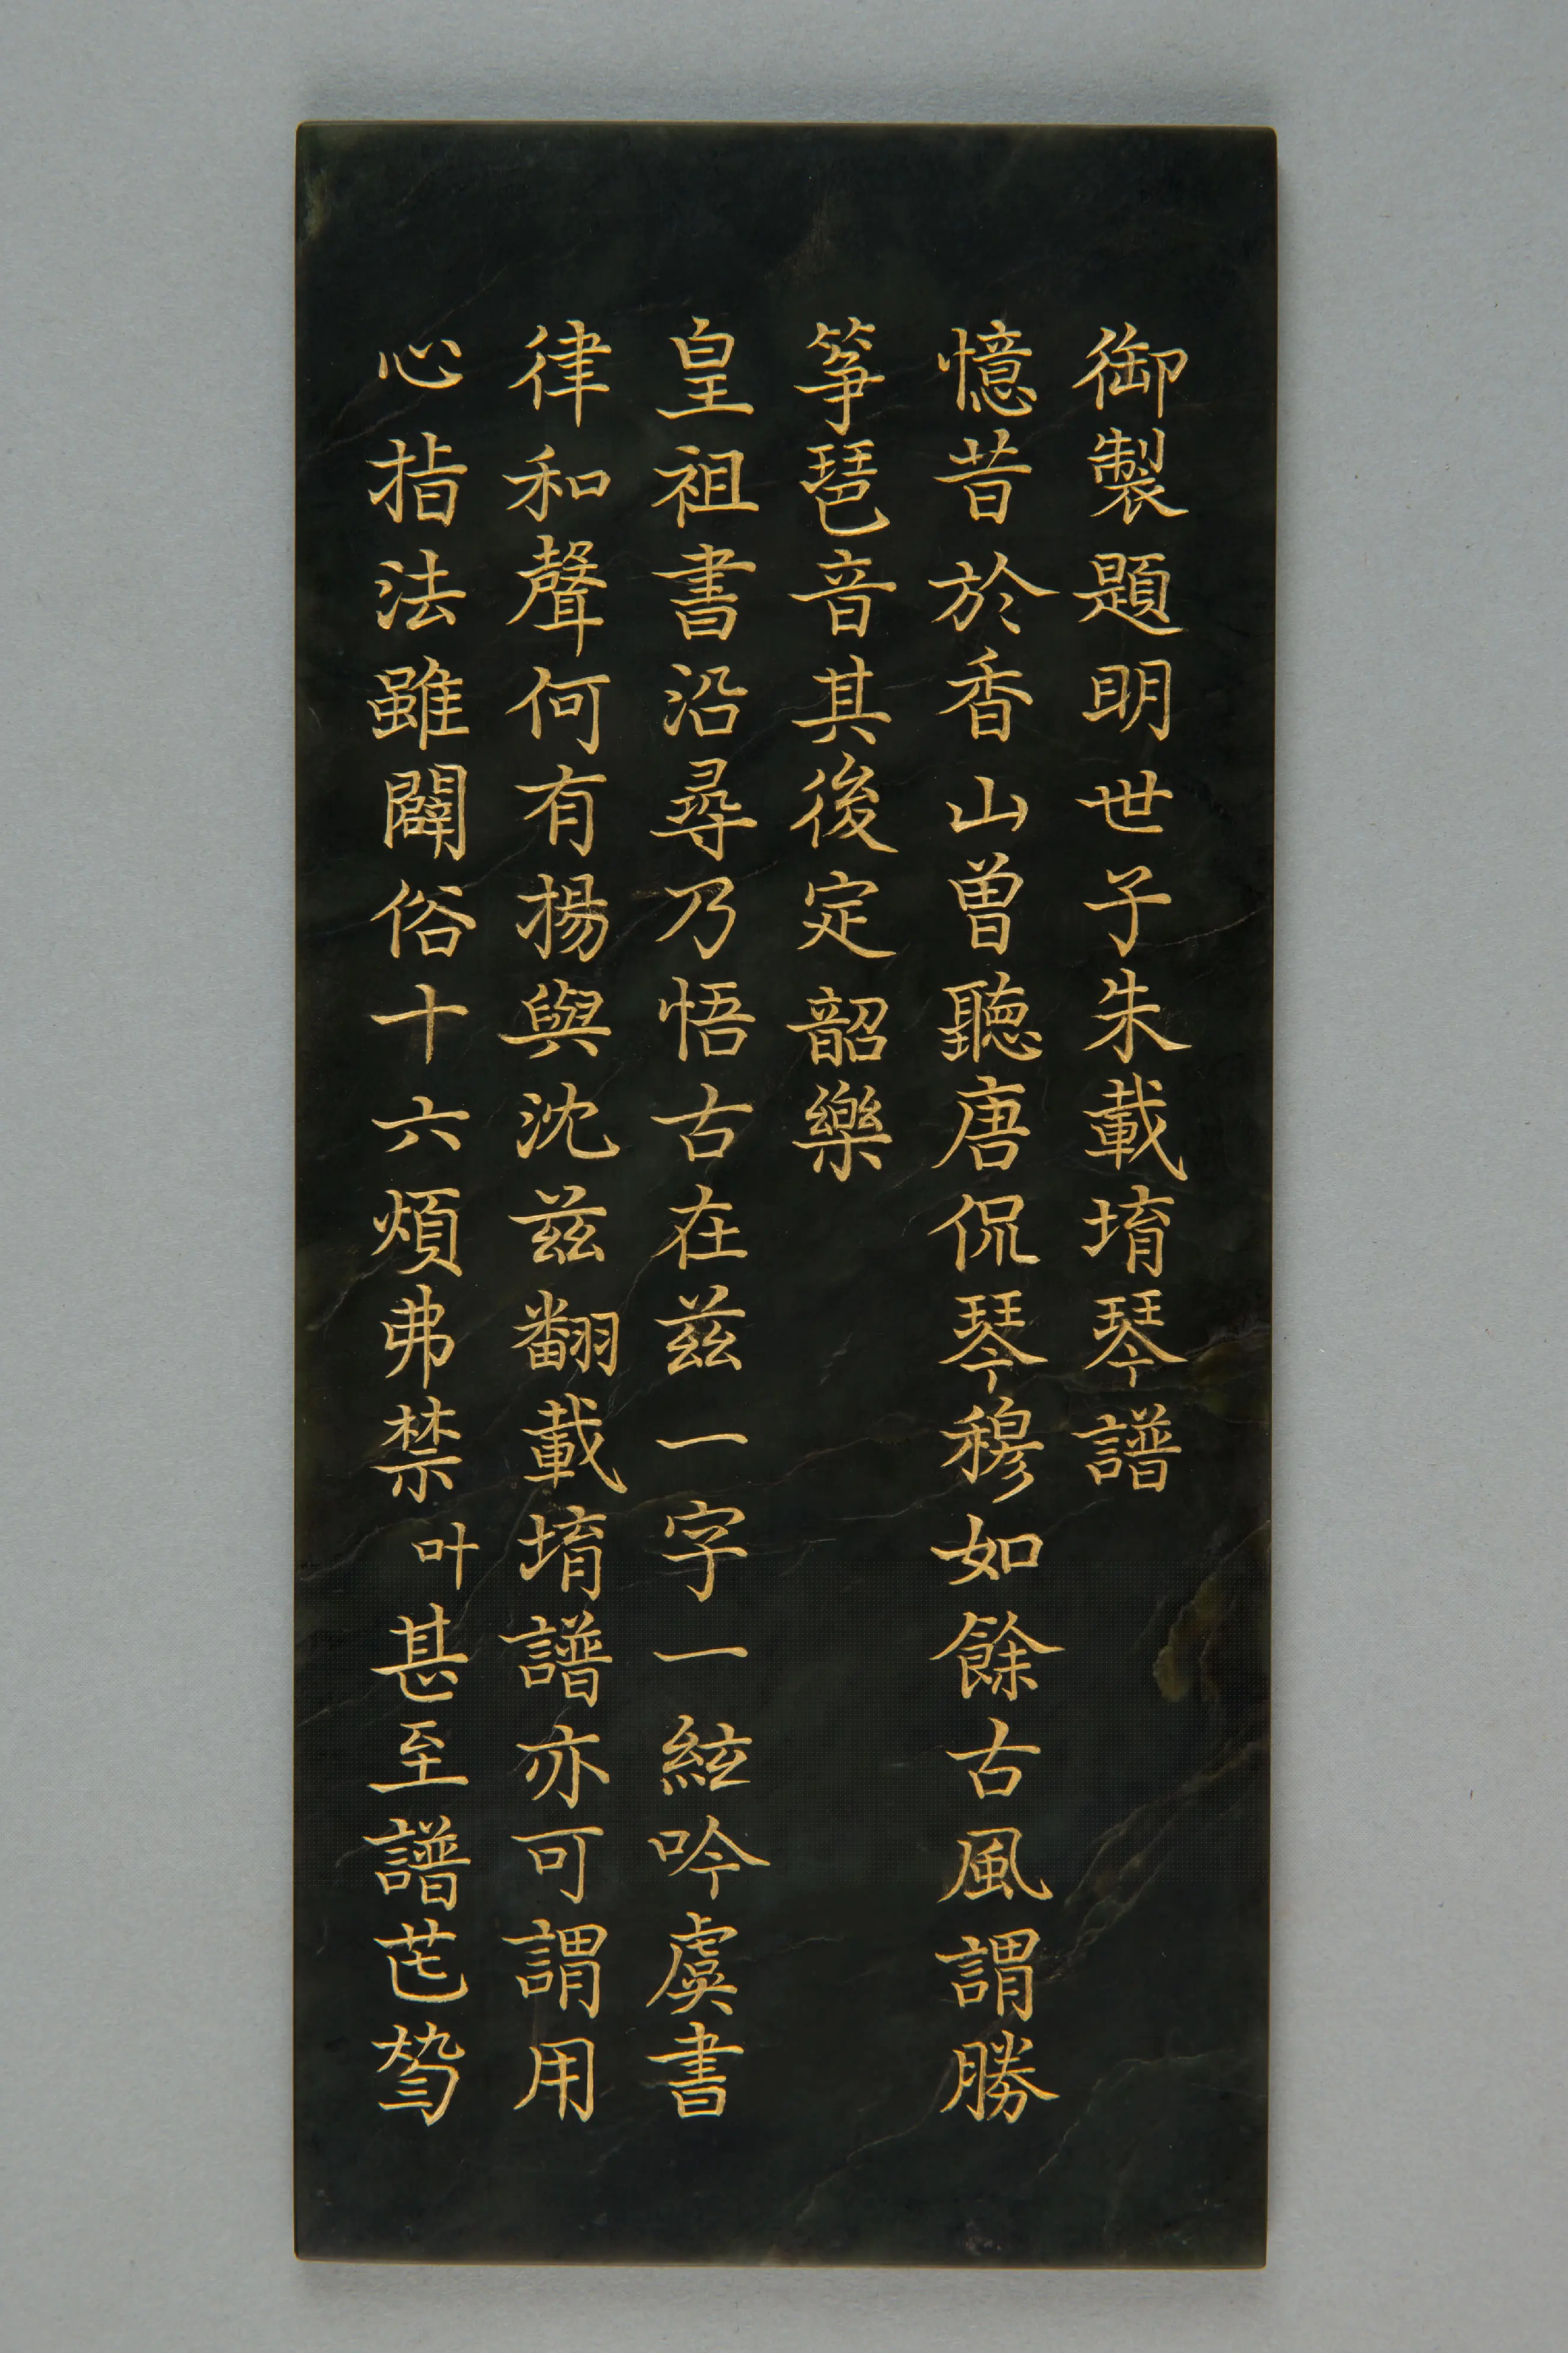 御製題明世子朱載堉琴譜
憶昔於香山曽聽唐侃琴穆如餘古風謂勝
筝琶音其後定韶樂
皇祖書沿尋乃悟古在兹一字一絃吟虞書
律和聲何有揚與沈兹翻載堉譜亦可謂用
心指法雖闢俗十六煩弗禁叶甚至譜芚